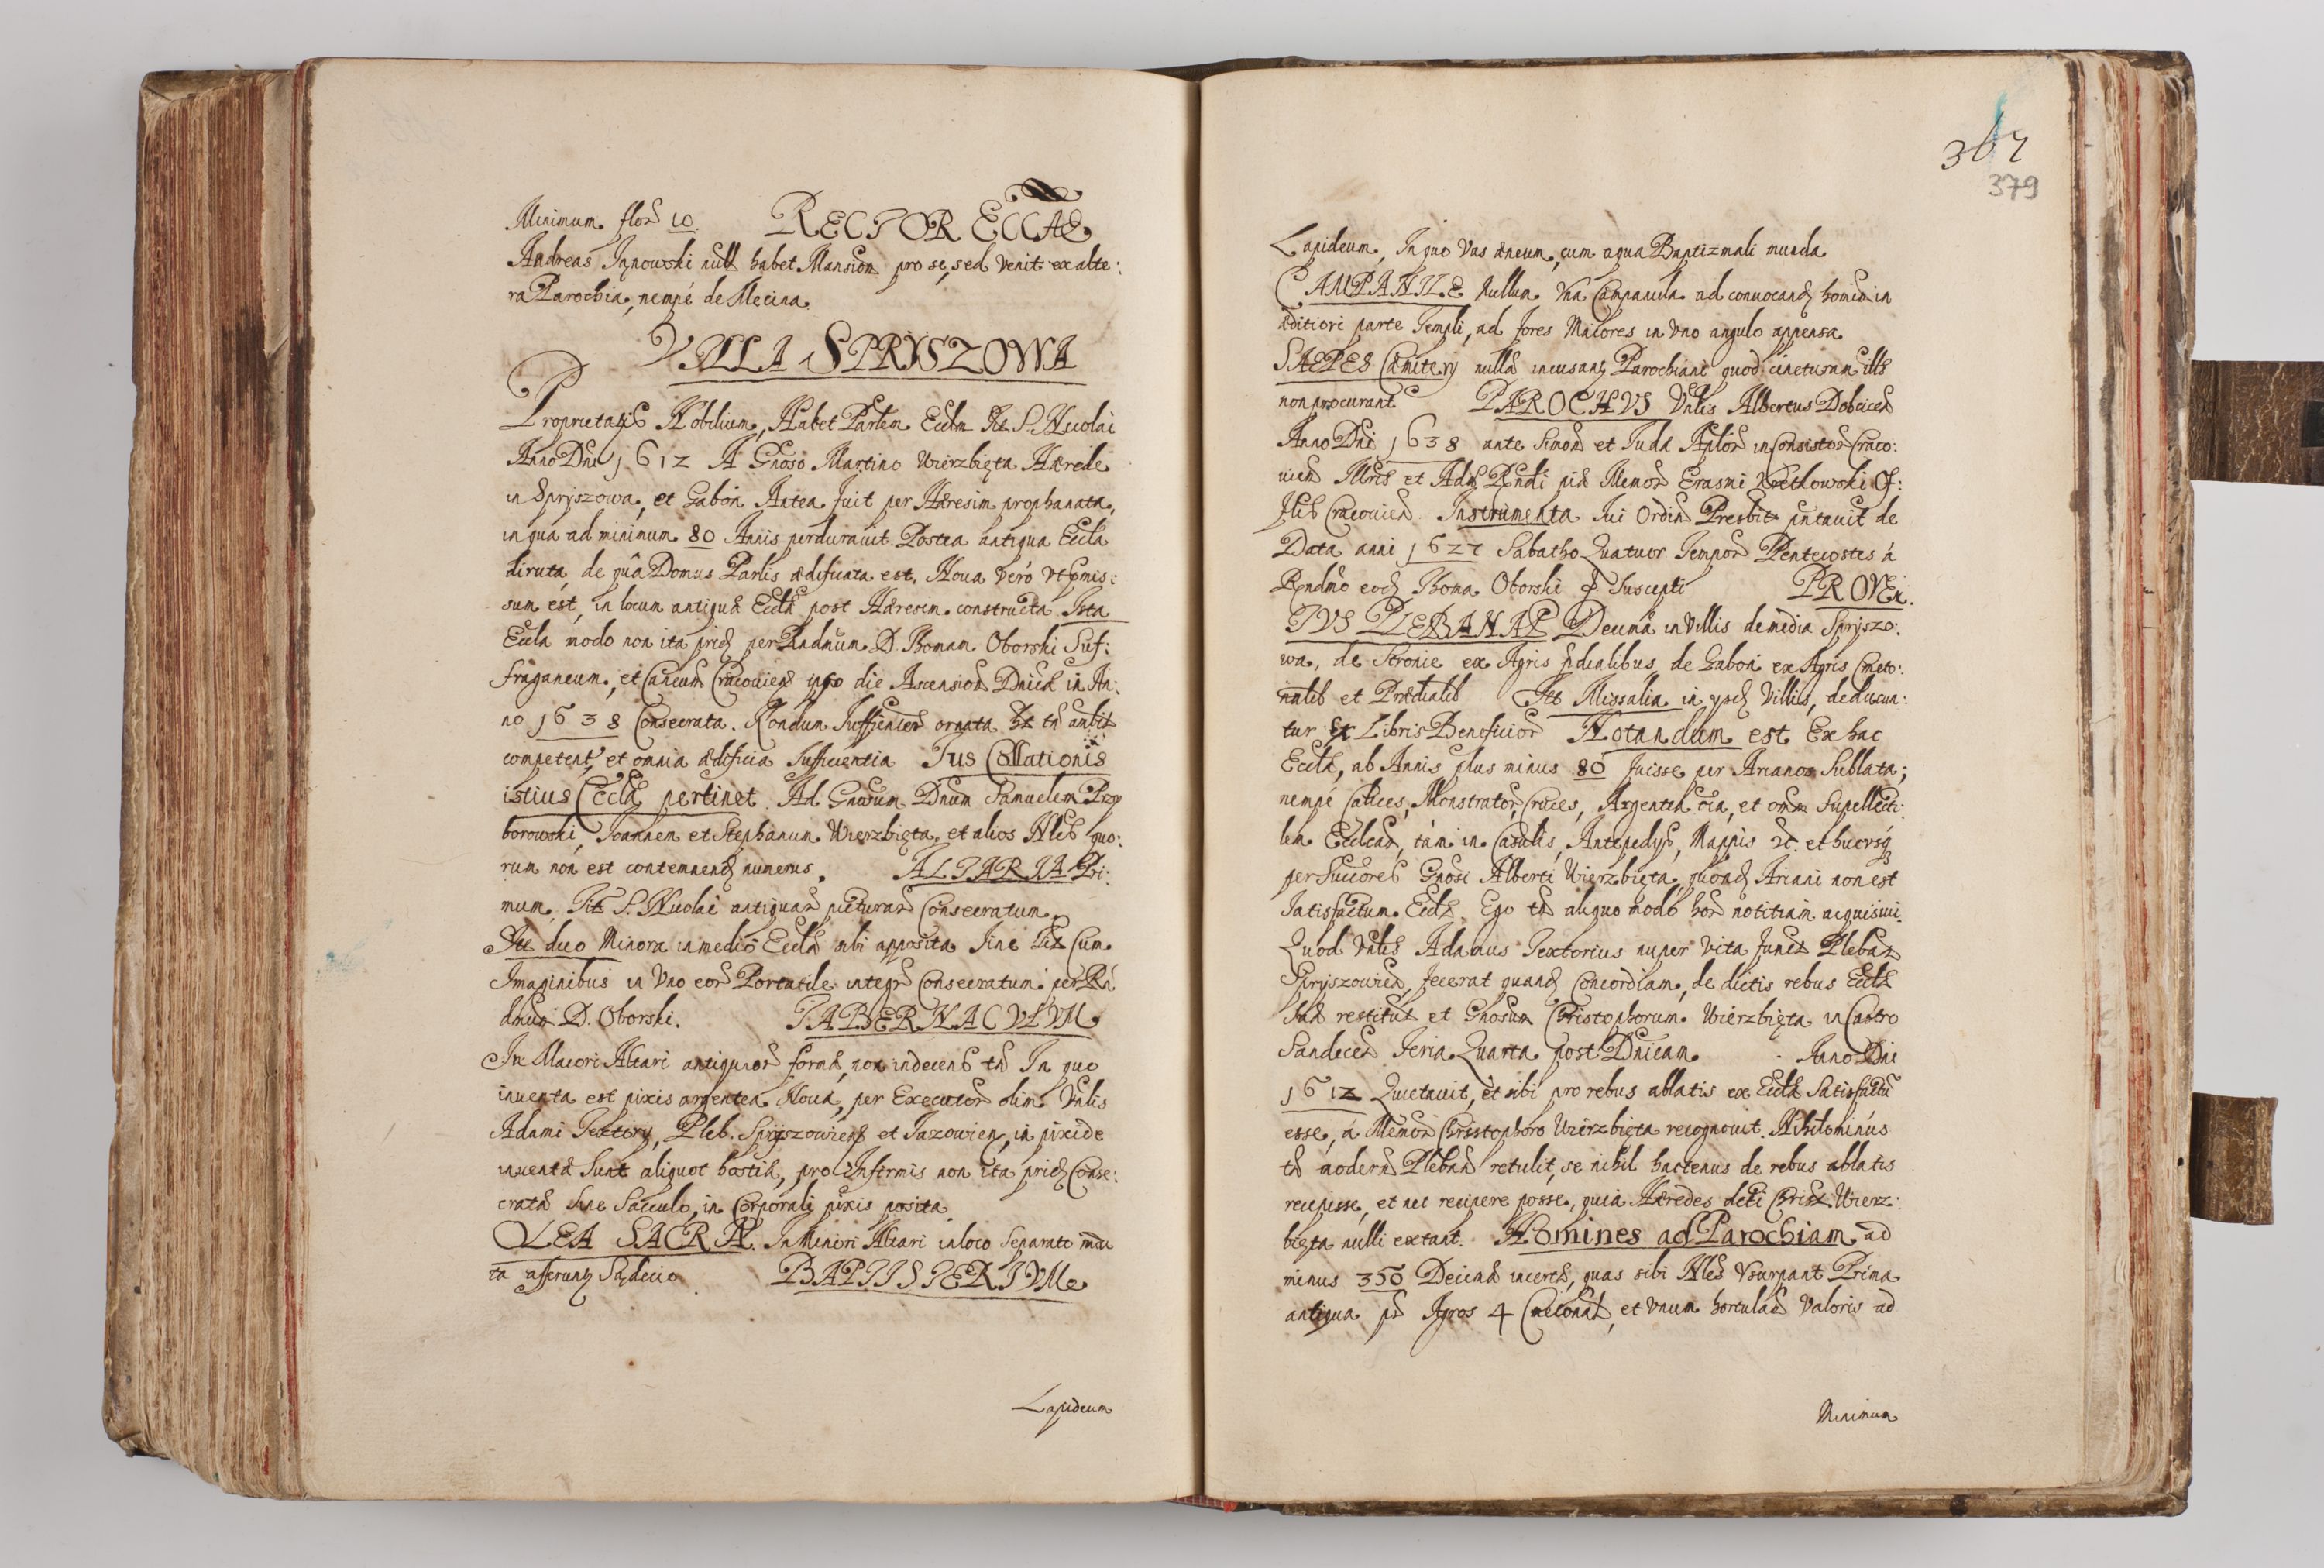 Minimum flor 10. RECTOR ECCLAE
Andreas Janowski null habet Mansion pro se, sed venit ex alte:
ra Parochia, nempé de Mecina.
VILLA SPRYSZOWA
Proprietatis Nobilium, Habet Parlem Eccle Tit S. Nicolai
Anno Dni 1612 A Gnoso Martino Wierzbięta Hærede
in Spryszowa, et Gaboń Antea fuit per Hæresim prophanata,
in qua ad minimum 80 Annis perduravit. Postea antiqua Eccla
diruta, de quâ Domus Parlis ædificata est. Noua veró vt pmis:
sum est, in locum antiquæ Eccle post Hæresim constructa Ista
Eccla modo non ita prid per Rndmum D. Thomam Oborski Suf:
fraganeum, et Canon Cracouien ipso die Ascension Dnicæ in An:
no 1638 Consecrata. Nondum Sufficienter ornata ht tn ambit
competent, et omnia ædificia Sufficientia Jus Collationis
istius Eccle pertinet. Ad Gnosum Dnum Samuelem Przy
borowski, Joannem et Stephanum Wierzbięta, et alios Nles quo:
rum non est contemnend numerus. ALTARIA Pri:
mum Tit S. Nicolai antiquar picturar Consecratum.
Ite duo Minora in medio Eccle sibi apposita Sine Tit Cum
Imaginibus in Vno eor Portatile integr Consecratum per Rn
dmum D. Oborski. TABERNACVLVM
In Maiori Altari antiquior formæ, non indecens tn In quo
inuenta est pixis argentea Noua, per Executor olim Vnlis
Adami Textory, Pleb. Spryszowien et Jazowien, in pixide
inuentæ Sunt aliquot hostiæ, pro Infirmis non ita prid Conse:
cratæ Sine Sacculo, in Corporali pixis posita
OLEA SACRA. In Minori Altari in loco Separato mu
ta afferunt Sandecio BAPTISTERIVM
Lapideum
367
379
Lapideum, In quo Vas æneum, cum aqua Baptizmali munda
CAMPANILE Nullum Vna Campanula ad conuocand homin in
æditiori parte Templi, ad fores Maiores in Vno angulo appensa
SAEPES Cæmitery nulla incusant Parochiani quod cincturam ills
non procurant PAROCHVS Vnlis Albertus Dobcicen
Anno Dni 1638 ante Simon et Judæ Aplor in Consistor Craco:
uien Illris et Adm Rndi piæ Memor Erasmi Kretkowski Of:
flis Cracouien. Instrumenta Sui Ordin Presbit pntauit de
Data anni 1627 Sabatho Quatuor Tempor Pentecostes á
Rndmo eod Thoma Oborski Suscepti PROVEN
TVS PLEBANAL Decimâ in Villis de media Spryszo:
wa, de Stronie ex Agris pdialibus de Gaboń ex Agris Cmeto:
nalib et Prædialib Ite Missalia in ysd Villis, deducun:
tur ex Libris Beneficior Notandum est Ex hac
Eccla, ab Annis plus minus 80 fuisse per Arianos Sublata;
nempé Calices, Monstrator, Cruces, Argentea oia, et om Supellecti:
lem Ecclcas, tám in Casulis, Antepedys, Mappis &c. et hucvsq
per Succores Gnosi Alberti Wierzbięta quond Ariani non est
Satisfactum Eccle. Ego tn aliquo modo hor notitiam acquisiui.
Quod Vnlis Adamus Textorius nuper Vita funct Pleban
Spryszowien, fecerat quand Concordiam, de dictis rebus Eccle
suæ restitut et Gnosum Christophorum Wierzbięta in Castro
Sandecen Feria Quarta post Dnicam Anno Dni
1612 Quietauit, et sibi pro rebus ablatis ex Eccla Satisfactu
esse, á Memor Christophoro Wierzbięta recognouit. Nihilominús
tn modern Pleban retulit, se nihil hactenus de rebus ablatis
recepisse, et nec recipere posse, quia Hæredes dcti Christ Wierz:
bięta nulli extant. Homines ad Parochiam ad
minus 350 Decimæ incertæ, quas sibi Nles Vsurpant Prima
antiqua pt Agros 4 Cmetonal, et Vnum hortulan Valoris ad
Minimum